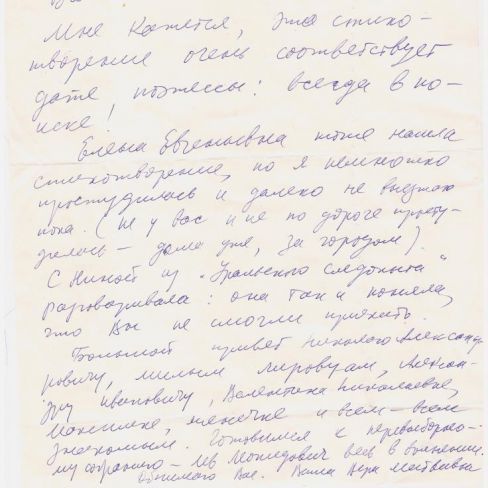 Мне кажется, это стихо-
творение очень соответствует
дате, поэтессы: всегда в по-
иске!
Елена Евгеньевна тоже нашла
стихотворение, но я немножко
простудилась и далеко не выезжаю
пока. (не у вас и не по дороге просту-
дилась – дома уже, за городом).
С Ниной из "Уральского следопыта"
разговаривала: она так и поняла,
что Вы не смогли приехать.
Большой привет Николаю Александ-
ровичу, милым Алексан-
дру Ивановичу, Валентине Николаевне,
Максимке, Женечке и всем-всем
знакомым. Готовимся к перевыборно-
му собранию – Лев весь в волнении.
Обнимаю Вас. Ваша Вера Матвеевна